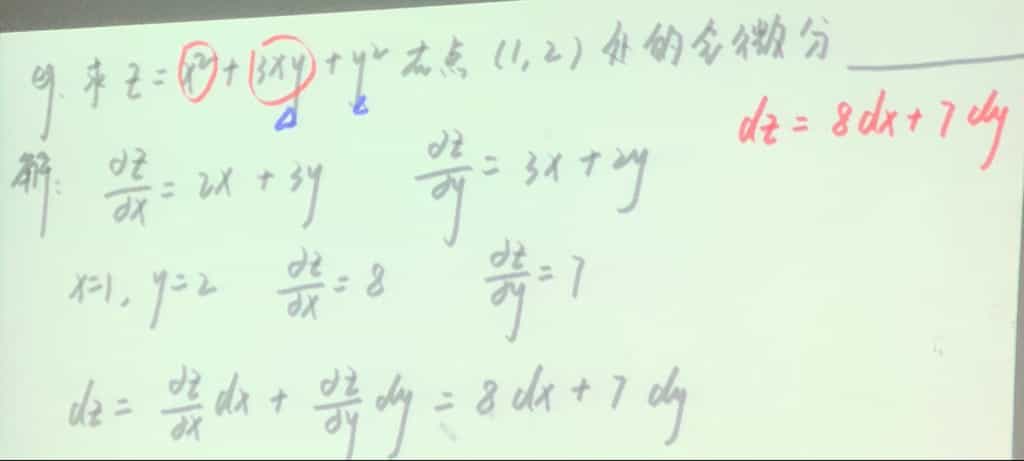 例. 求 z = x² + 3xy + y² 在点 (1, 2) 处的全微分 ______
dz = 8dx + 7dy
解: ∂z/∂x = 2x + 3y ∂z/∂y = 3x + 2y
x=1, y=2 ∂z/∂x = 8 ∂z/∂y = 7
dz = ∂z/∂x dx + ∂z/∂y dy = 8 dx + 7 dy